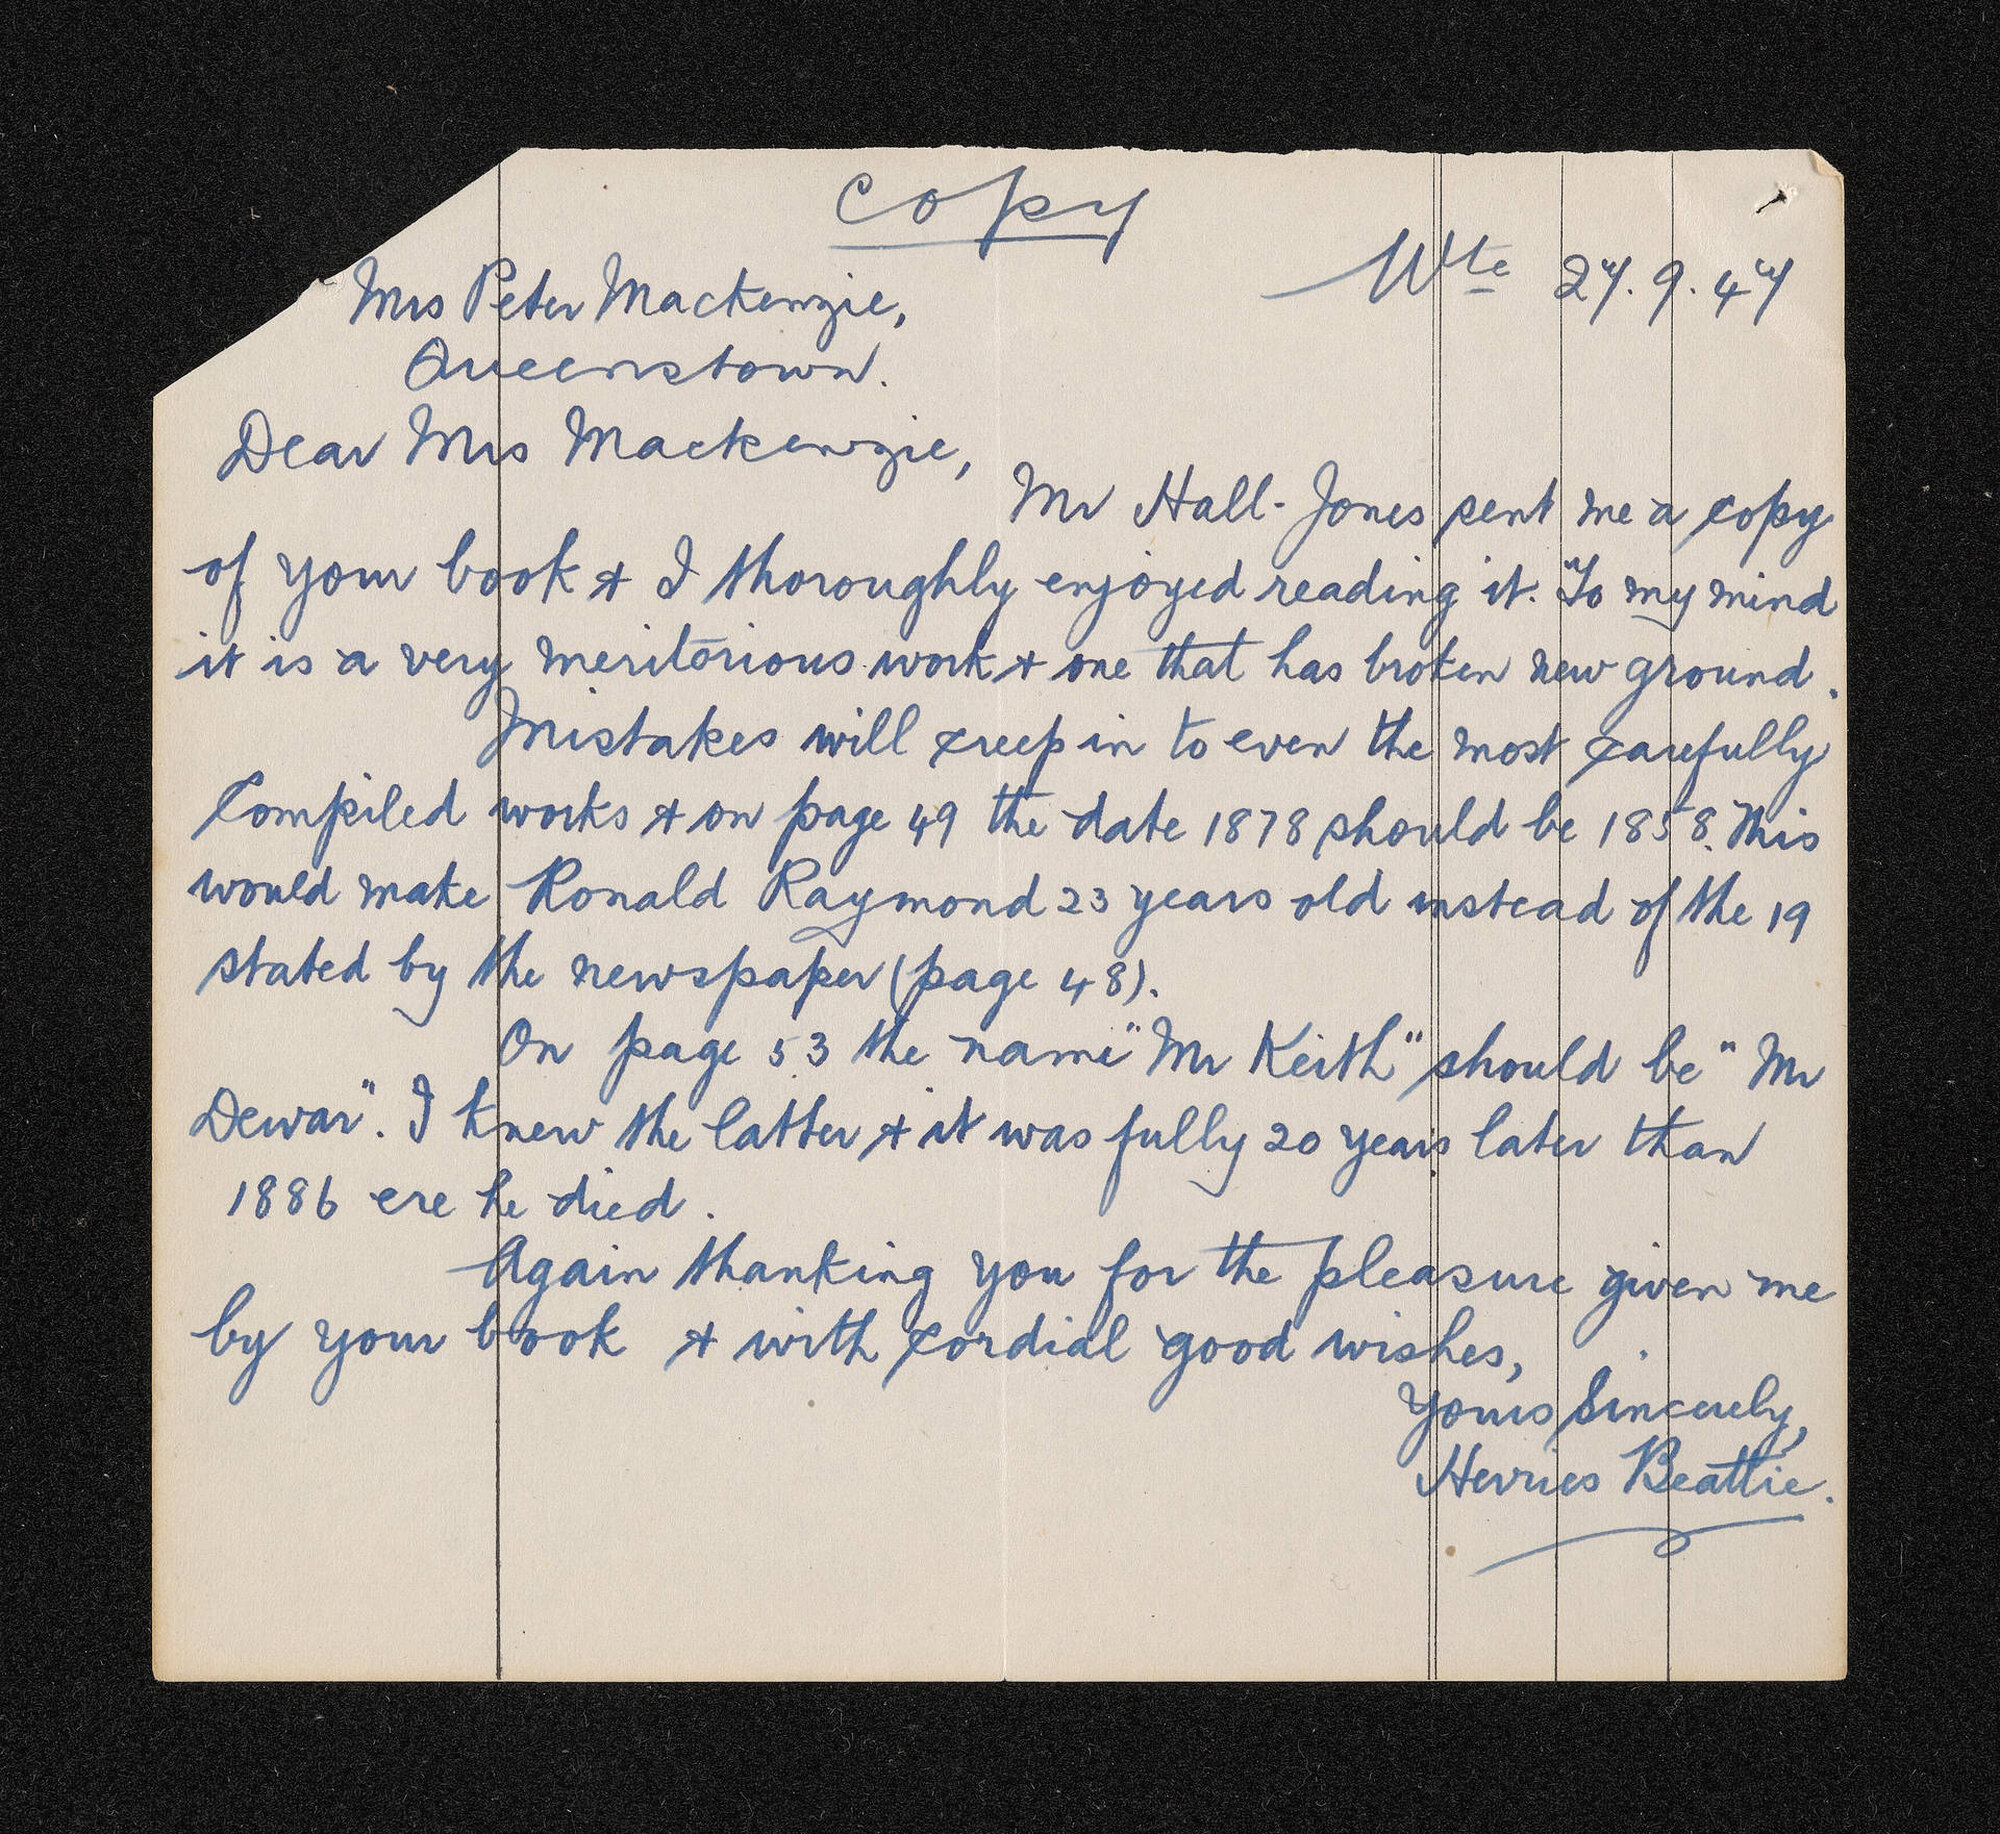 Copy
Wte 27.9.47
Mrs Peter Mackenzie,
Queenstown.
Dear Mrs Mackenzie,
Mr Hall-Jones sent me a copy
of your book & I thoroughly enjoyed reading it. To my mind
it is a very meritorious work & one that has broken new ground.
Mistakes will creep in to even the most carefully
Compiled works & on page 49 the date 1878 should be 1858. This
would make Ronald Raymond 23 years old instead of the 19
stated by the newspaper (page 48).
On page 53 the name "Mr Keith" should be "Mr
Dewar". I knew the latter & it was fully 20 years later than
1886 ere he died.
Again thanking you for the pleasure given me
by your book & with cordial good wishes,
Yours Sincerely,
Herries Beattie.